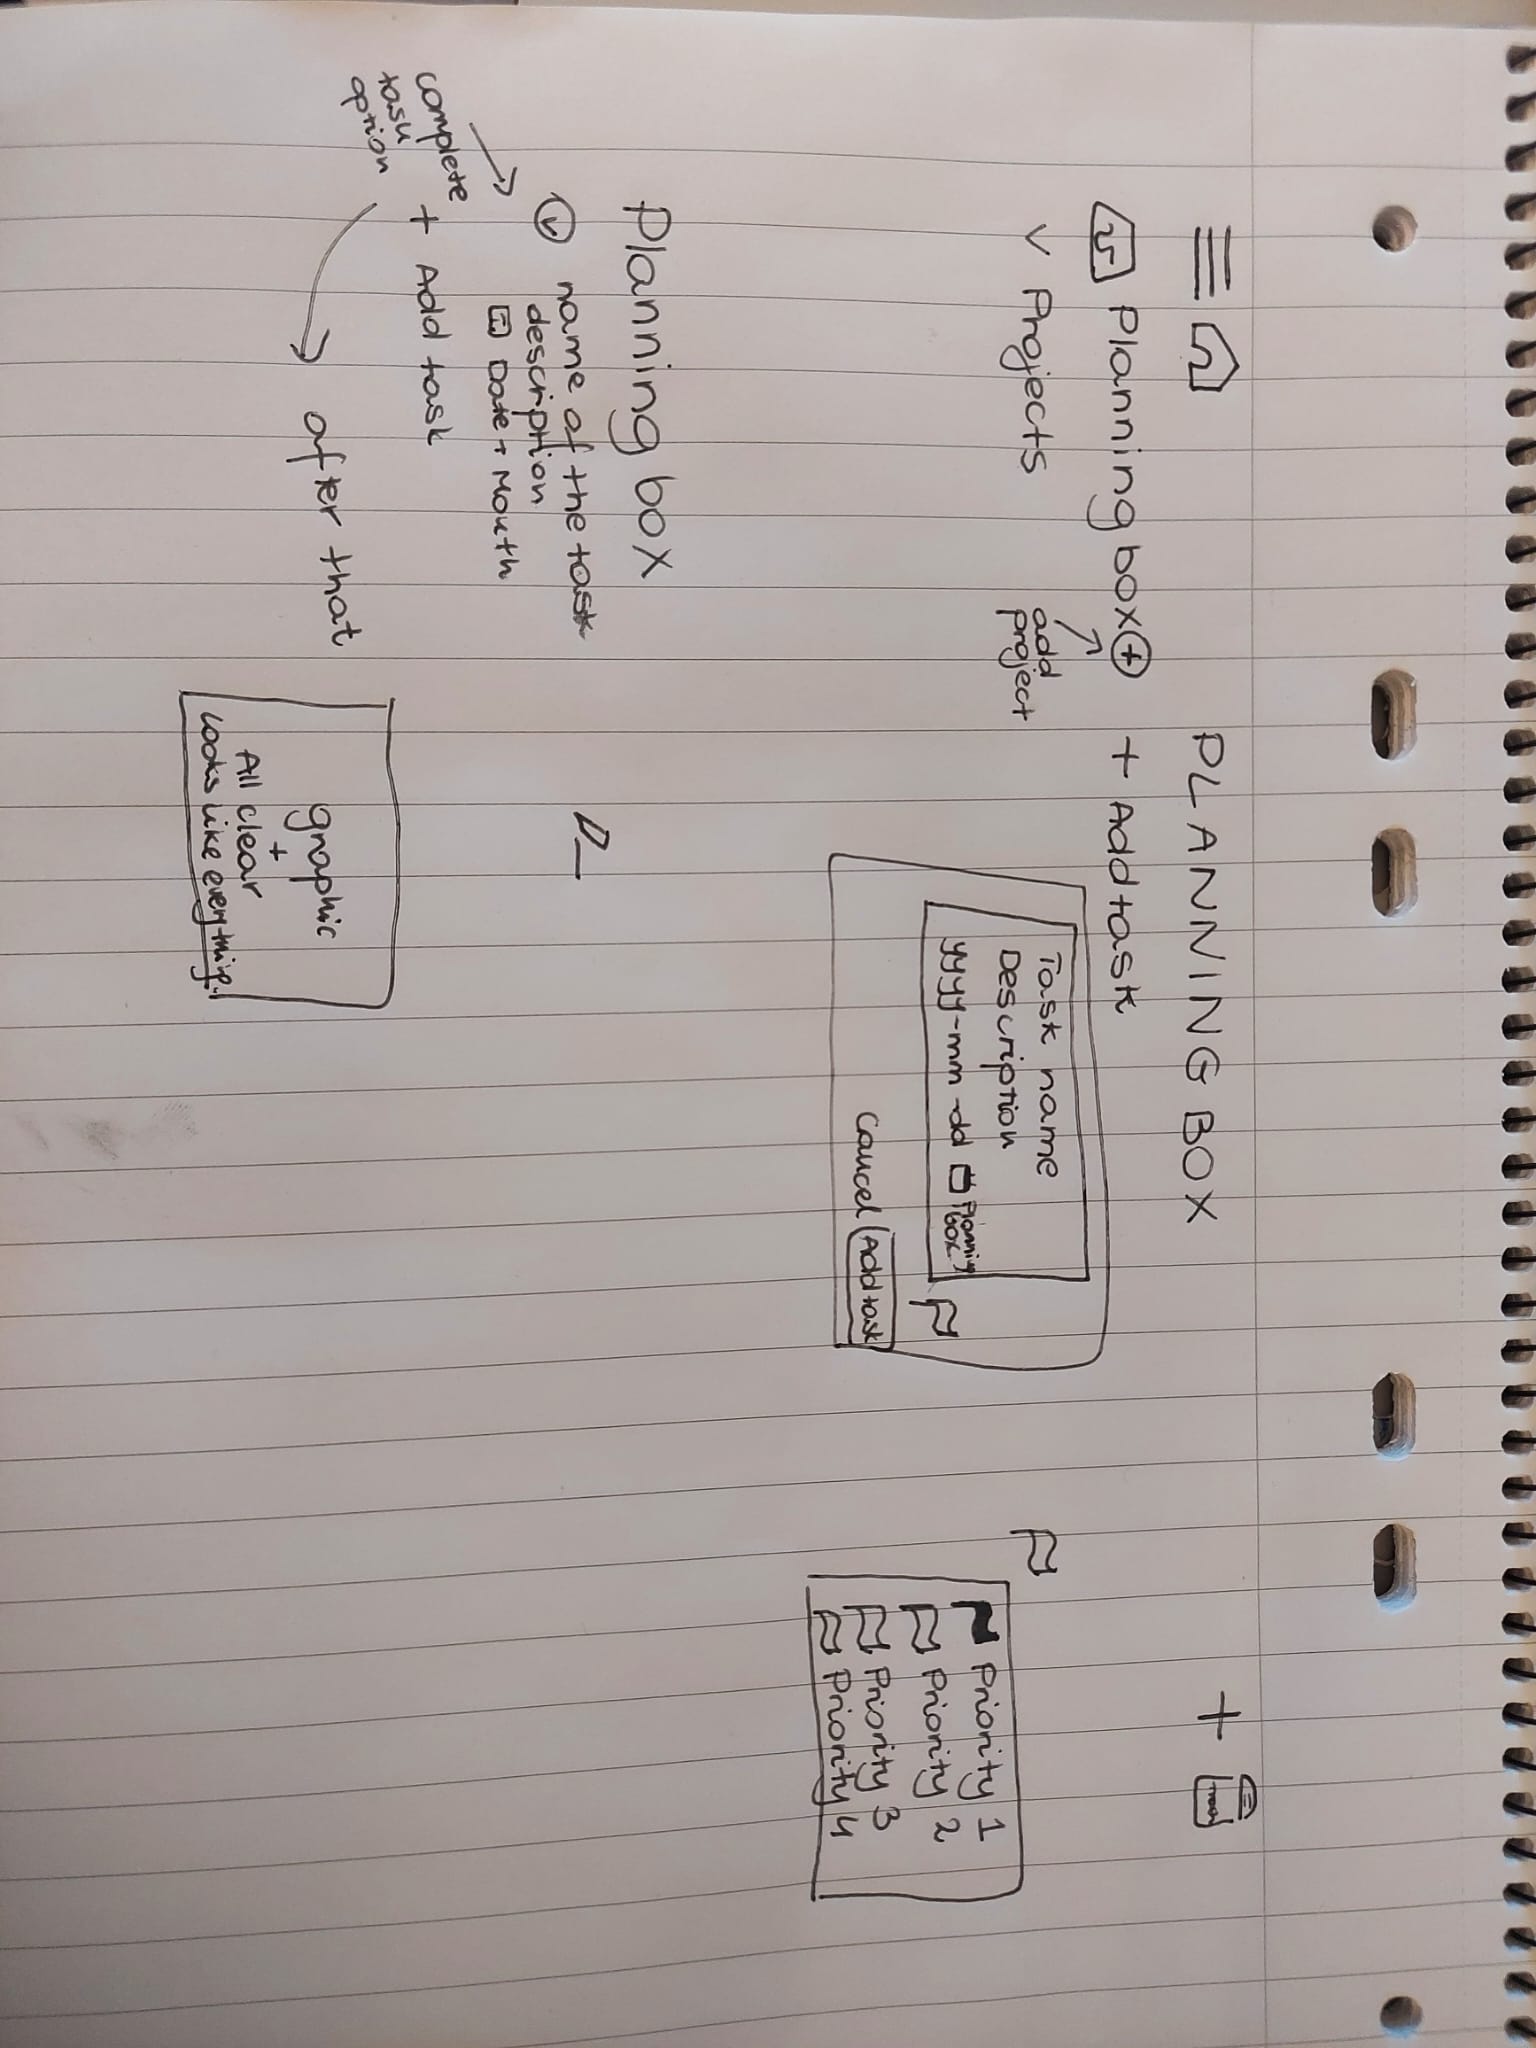 PLANNING BOX
Planning box
+ Add task
v Projects
add
project
Task name
Description
yyyy-mm-dd
Planning
box
Cancel
Add task
Priority 1
Priority 2
Priority 3
Priority 4
Planning box
name of the task
description
Date + Month
+ Add task
complete
task
option
after that
graphic
+
All clear
looks like everything